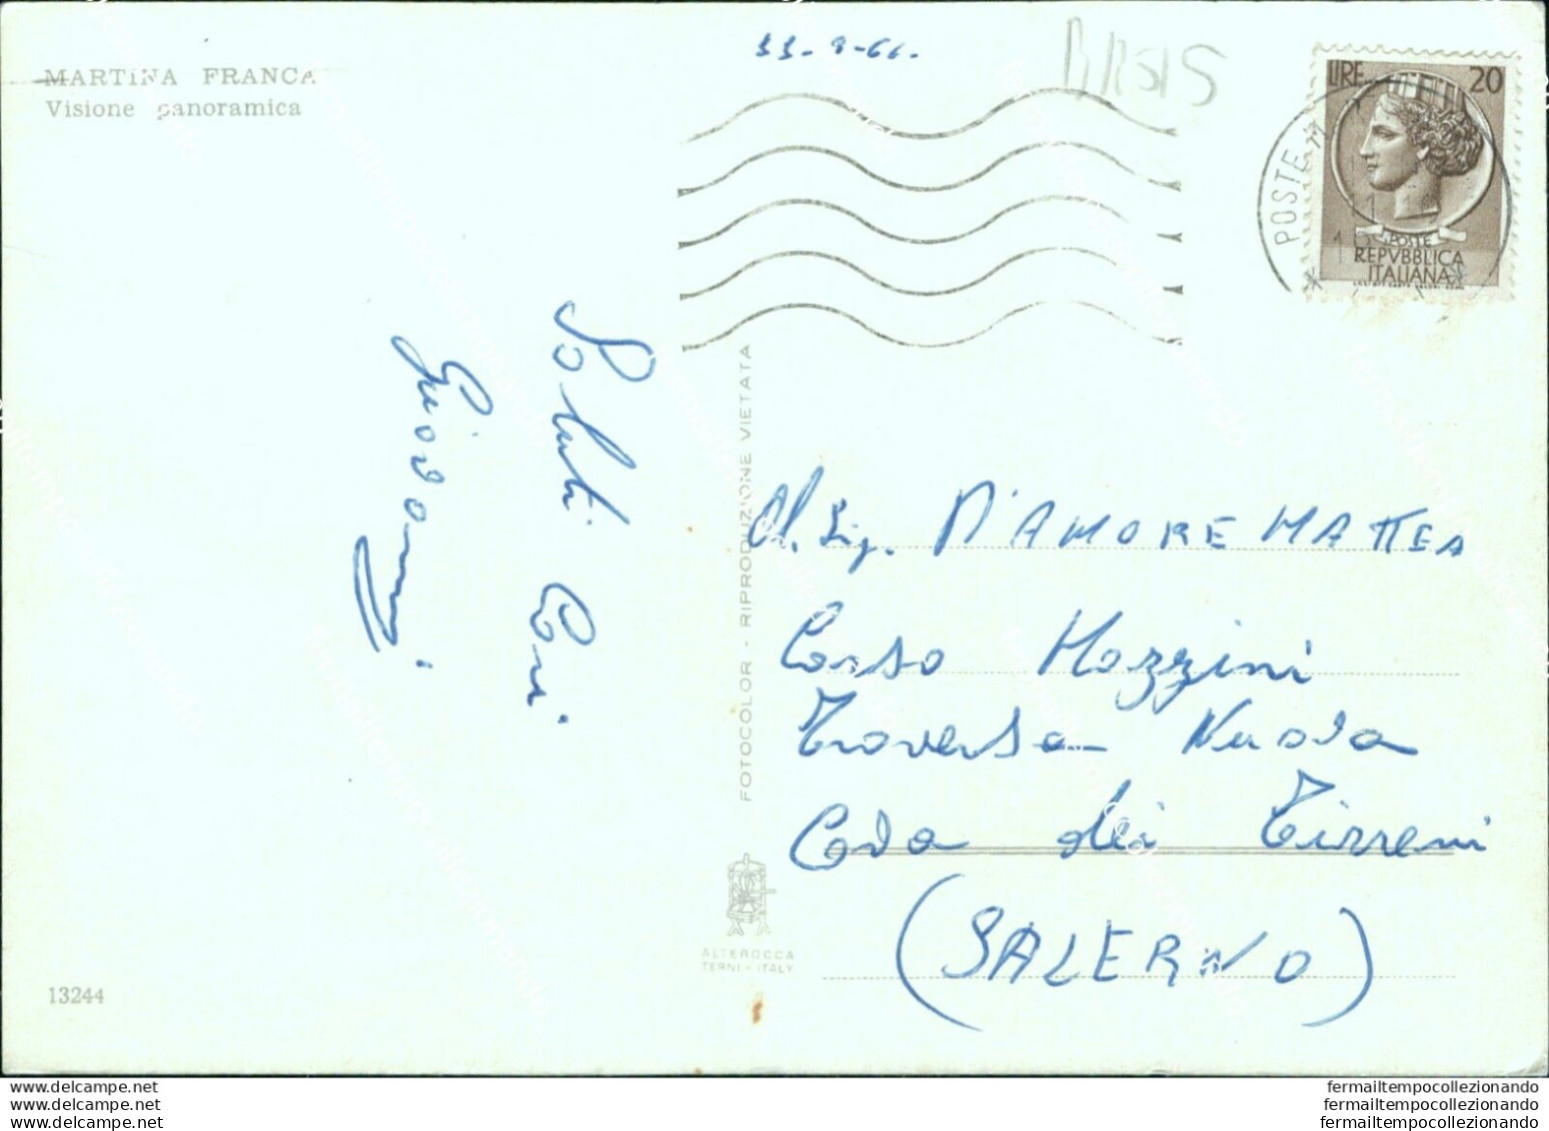 MARTINA FRANCA
Visione panoramica
11-8-66.
LIRE 20
POSTE
REPVBBLICA
ITALIANA
POSTE
Saluti Cari
FOTOCOLOR - RIPRODUZIONE VIETATA
Al Sig. D'AMORE MATTEO
Corso Mazzini
Traversa Nuova
Cava dei Tirreni
(SALERNO)
ALTEROCCA
TERNI - ITALY
13244
www.delcampe.net
www.delcampe.net
www.delcampe.net
fermailtempocollezionando
fermailtempocollezionando
fermailtempocollezionando